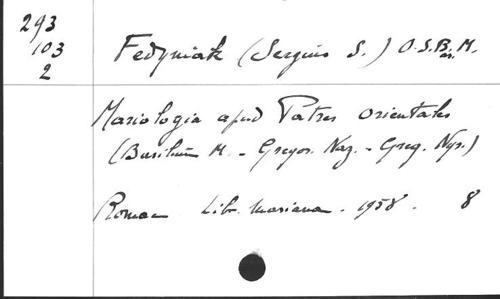 293
103
2
Fedyniak (Sergius S.) O.S.Bas.M.
Mariologia apud Patres orientales
(Basilium M. - Gregor. Naz. - Greg. Nys.)
Romae Lib. Mariana. 1958. 8